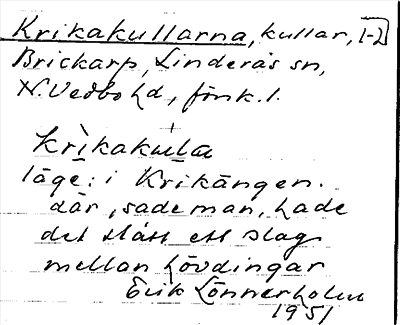 Krikakullarna, kullar, [1-2]
Brickarp, Linderås sn,
N. Vedbo hd, Jönk. l.
krìkakula
läge: i Krikängen.
där, sade man, hade
det stått ett slag
mellan hövdingar
Erik Lönnerholm
1951